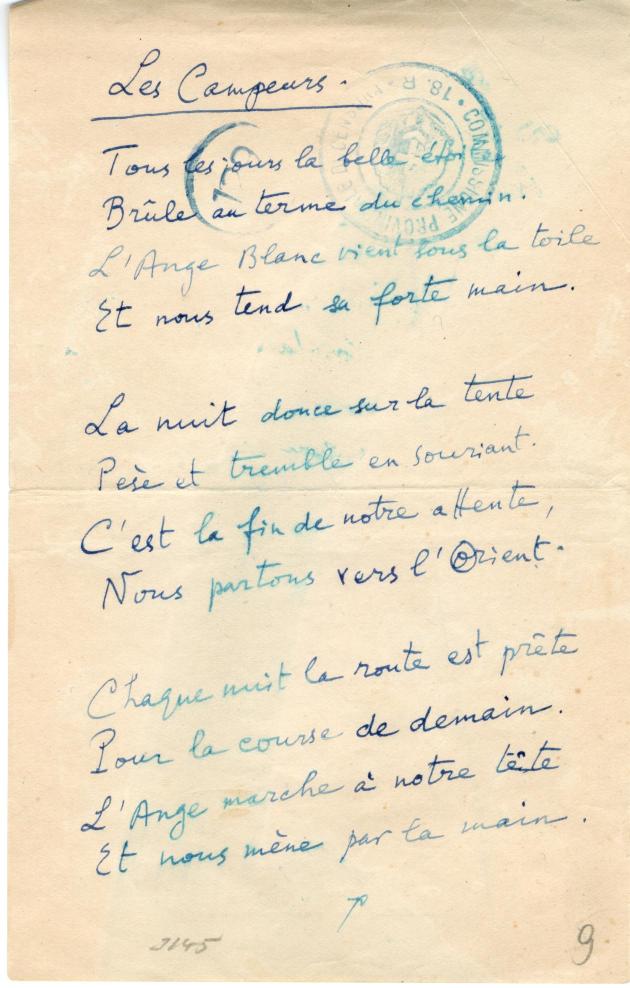 Les Campeurs.
Tous les jours la belle étoile
Brûle au terme du chemin.
L'Ange Blanc vient sous la toile
Et nous tend sa forte main.
La nuit douce sur la tente
Pèse et tremble en souriant.
C'est la fin de notre attente,
Nous partons vers l'Orient.
Chaque nuit la route est prête
Pour la course de demain.
L'Ange marche à notre tête
Et nous mène par la main.
9